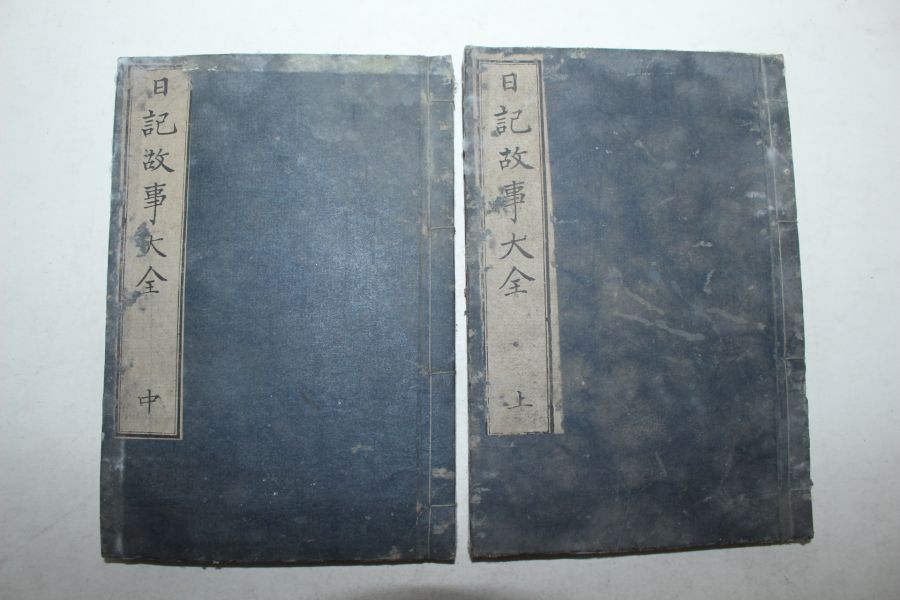 日記故事大全 上
日記故事大全 中